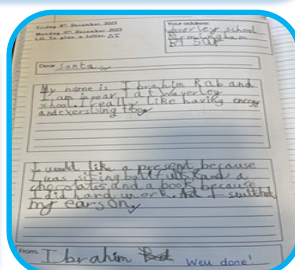 Friday 8th December 2023
Monday 4th December 2023
LO: To plan a letter.
Your address:
Waverley school
Birmingham
Dear Santa
My name is Ibrahim Rab and
I am in year 1 at Waverley
school. I really like having energy
and exersising too
I would like a present because
I was siting butifully and a
chocolates and a book because
I did hard work. And I switched
my ears on.
From, Ibrahim
Well done!